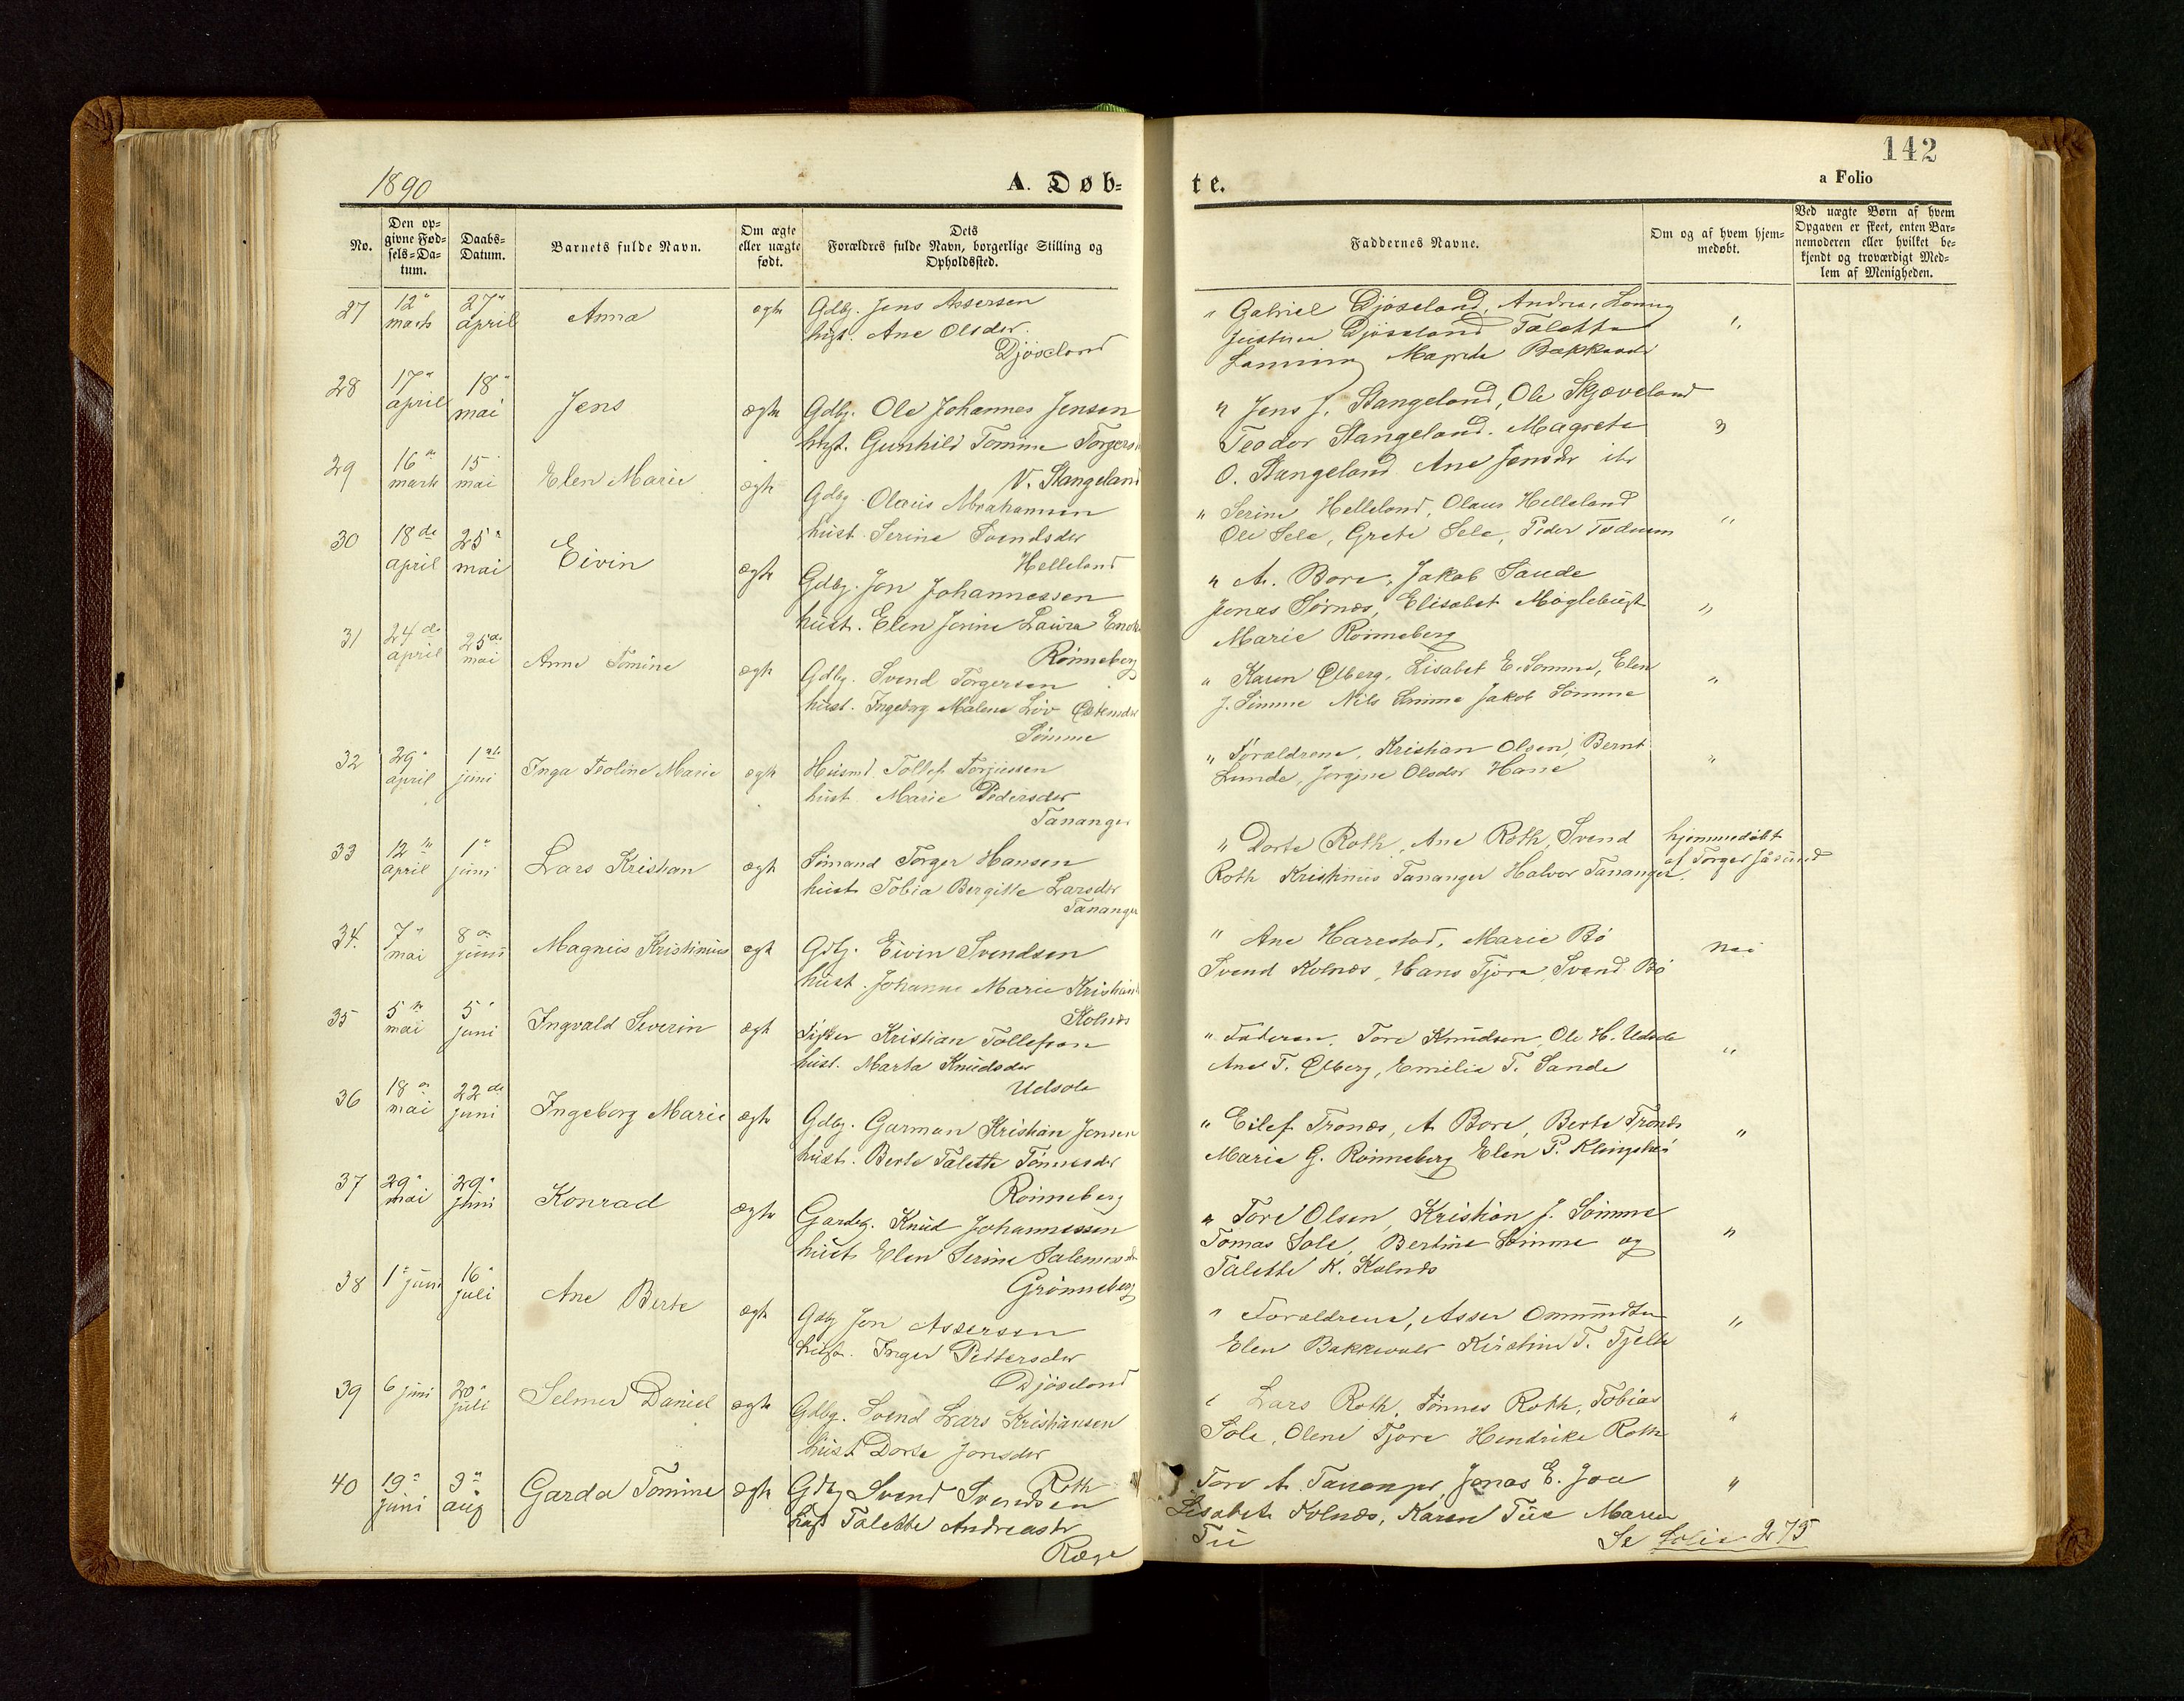 142
1890
A. Døb-
te.
a Folio
No.
Den op-
givne Fød-
sels-Da-
tum.
Daabs-
Datum.
Barnets fulde Navn.
Om ægte
eller uægte
født.
Dets
Forældres fulde Navn, borgerlige Stilling og
Opholdssted.
Faddernes Navne.
Om og af hvem hjem-
medøbt.
Ved uægte Børn af hvem
Opgaven er skeet, enten Bar-
nemoderen eller hvilket be-
kjendt og troværdigt Med-
lem af Menigheden.
27
12"
marts
27"
april
Anna
ægte
Gdbg. Jens Assersen
hust. Ane Olsdtr.
Djøseland
" Gabriel Djøseland, Andrea
Justine Djøseland Talette
Magrete
"
28
17"
april
18"
mai
Jens
ægte
Gdbg. Ole Johannes Jensen
hust. Gunhild Tomine
V. Stangeland
" Jens J. Stangeland, Ole Skjæveland
Teodor Stangeland. Magrete
O. Stangeland Ane Jensdtr
"
29
16"
marts
15
mai
Elen Marie
ægte
Gdbg. Olaus Abrahamsen
hust. Serine Svendsdtr
Helleland
" Serine Helleland, Olaus Helleland
Ole Sele, Grete Sele, Peder
"
30
18de
april
25"
mai
Eivin
ægte
Gdbg. Jon Johannessen
hust. Elen Jorine Laura
Rønneberg
" A. Bore, Jakob Sande
Jonas Sørnes, Elisabet Møglebust
Marie Rønneberg
"
31
24de
april
25de
mai
Anne Tomine
ægte
Gdbg. Svend Torgersen
hust. Ingeborg Malene
Sømme
" Karen Ølberg, Lisabet E. Sømme, Elen
J. Sømme Nils Sømme Jakob Sømme
"
32
29"
april
1ste
juni
Inga Teoline Marie
ægte
Husmd. Tollef Torjussen
hust. Marie Pedersdtr
Tananger
" Forældrene, Kristian Olsen, Bernt
Lunde, Jorgine Olsdtr
"
33
12te
april
1"
juni
Lars Kristian
ægte
Sømand Torger Hansen
hust. Tobia Bergitte Larsdtr
Tananger
" Dorte Roth, Ane Roth, Svend
Roth Kristinus Tananger Halvor Tananger
hjemmedøbt
af Torger Jåsund
34.
7"
mai
8"
juni
Magnus Kristinus
ægt
Gdbg. Eivin Svendsen
hust. Johanne Marie
Kolnes
" Ane Harestad, Marie Bø
Svend Kolnes, Hans Tjora, Svend Bø
nei
35
5te
mai
5"
juni
Ingvald Severin
ægt
Fisker Kristian Tollefsen
hust. Marta Knudsdtr
Udsola
" Faderen, Tore Knudsen, Ole H. Udsola
Ane T. Ølberg, Emilie T. Sande
"
36
18"
mai
22de
juni
Ingeborg Marie
ægte
Gdbg. Garman Kristian Jensen
hust. Berte Talette Tønnesdtr
Rønneberg
" Eilef Tronæs, A. Bore, Berte Tronæs
Marie G. Rønneberg Elen P.
"
37
29"
mai
29"
juni
Konrad
ægte
Gardbg. Knud Johannessen
hust. Elen Serine
Grønneberg
" Tore Olsen, Kristian J. Sømme
Tomas Sole, Bertine Sømme og
Talette K. Kolnes
"
38
1" juni
16"
juli
Ane Berte
ægte
Gdbg Jon Assersen
hust. Inger Pettersdtr
Djøseland
" Forældrene, Asser
Elen Kirstine T. Tjelta
"
39
6 juni
20"
juli
Selmer Daniel
ægte
Gdbg. Svend Lars Kristiansen
hust Dorte Jonsdtr
Roth
" Lars Roth, Tønnes Roth, Tobias
Sole, Olene Tjora Hendrike Roth
"
40
19"
juni
3"
aug
Garda Tomine
ægte
Gdbg Svend Svendsen
hust Talette
Ræge
Tore A. Tananger, Jonas E. Joa
Lisabet Kolnes, Karen Tue Maren
Tu
"
Se folio 275